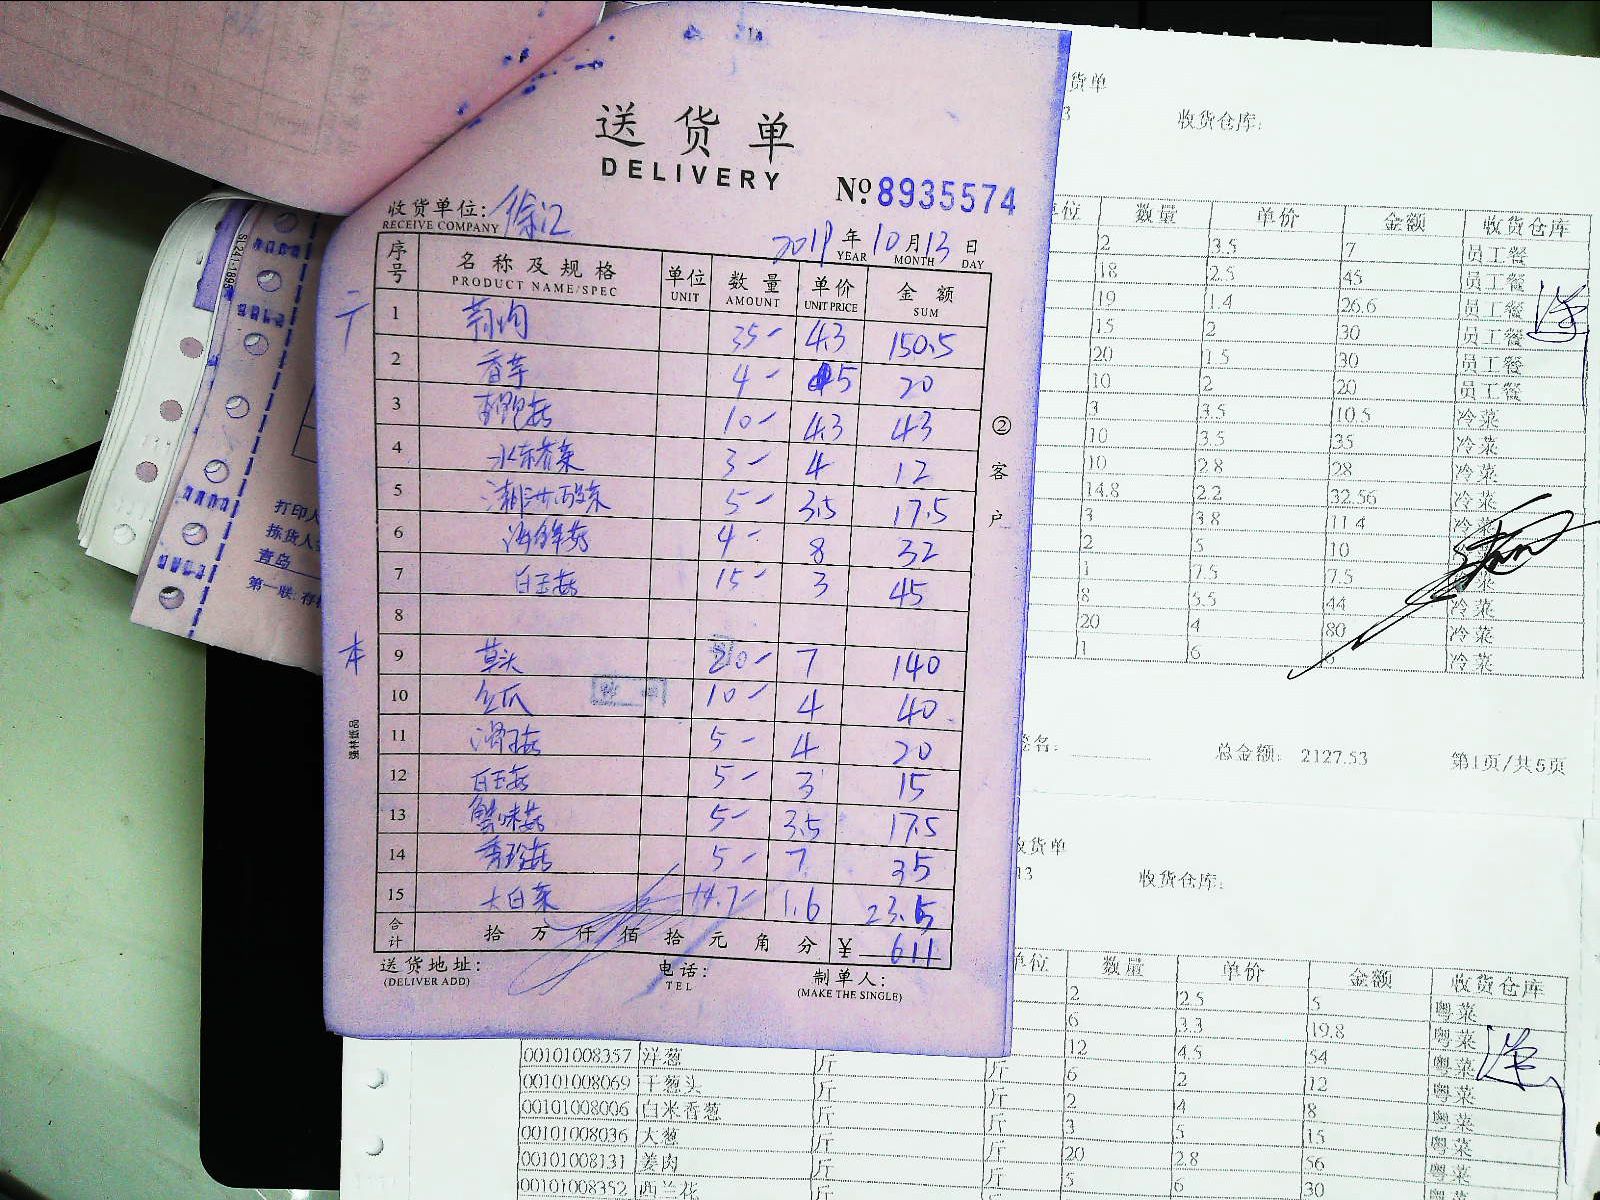 送货单
DELIVERY
No. 8935574
收货单位: 徐汇
RECEIVE COMPANY
2019 年 10 月 13 日
YEAR MONTH DAY
序号 名称及规格 单位 数量 单价 金额
PRODUCT NAME/SPEC UNIT AMOUNT UNIT PRICE SUM
1 35- 4.3 150.5
2 香芋 4- 5 20
3 杏鲍菇 10- 4.3 43
4 水东芥菜 3- 4 12
5 潮州酸菜 5- 3.5 17.5
6 海鲜菇 4- 8 32
7 白玉菇 15- 3 45
8
本
9 20- 7 140
10 10- 4 40
11 滑子菇 5- 4 20
12 白玉菇 5- 3 15
13 蟹味菇 5- 3.5 17.5
14 秀珍菇 5- 7 35
15 大白菜 14.7- 1.6 23.5
合计 拾 万 仟 佰 拾 元 角 分 ¥ 611
送货地址: 电话: 制单人:
(DELIVER ADD) TEL (MAKE THE SINGLE)
②客户
强林纸品
SL241-1895
打印人
拣货人
青岛
第一联: 存
货单
3 收货仓库:
单位 数量 单价 金额 收货仓库
2 3.5 7 员工餐
18 2.5 45 员工餐
19 1.4 26.6 员工餐
15 2 30 员工餐
20 1.5 30 员工餐
10 2 20 员工餐
3 3.5 10.5 冷菜
10 3.5 35 冷菜
10 2.8 28 冷菜
14.8 2.2 32.56 冷菜
3 3.8 11.4 冷菜
2 5 10
1 7.5 7.5
8 5.5 44 冷菜
20 4 80 冷菜
1 6 冷菜
签名: 总金额: 2127.53 第1页/共5页
收货单
13 收货仓库:
单位 数量 单价 金额 收货仓库
2 2.5 5 粤菜
6 3.3 19.8 粤菜
00101008357 洋葱 斤 斤 12 4.5 54 粤菜
00101008069 干葱头 斤 斤 6 2 12 粤菜
00101008006 白米香葱 斤 斤 2 4 8 粤菜
00101008036 大葱 斤 斤 3 5 15 粤菜
00101008131 姜肉 斤 斤 20 2.8 56 粤菜
00101008352 西兰花 斤 斤 5 6 30 粤菜